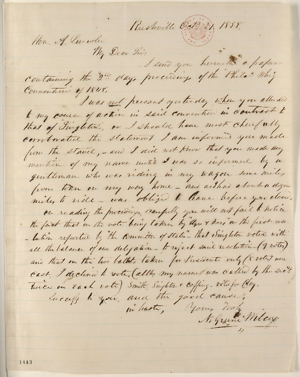 Rushville Oct. 21, 1858.
Hon. A. Lincoln
My Dear Sir,
I send you herewith a paper
containing the 2nd days proceedings of the Phila. Whig
Convention of 1848.
I was not present yesterday when you alluded
to my course of action in said convention in contrast to
that of Singleton, or I should have most cheerfully
corroborated the statement I am informed you made
from the stand, and I did not know that you made any
mention of my name until I was so informed by a
gentleman who was riding in my wagon some miles
from town on my way home
miles to ride - was obliged to leave before you close.
on reading the proceedings carefully you will not fail to notice
the fact that on the vote being taken by
reported by the Committee of
all the balance of our delegation to reject said resolution (8 votes)
and that on the two ballots taken for President only (8 votes) was
cast. I declined to vote, (altho my name was called by the
twice on each vote)
to you, and the good cause,
in haste, Yours Truly
N. Greene Wilcox
1443